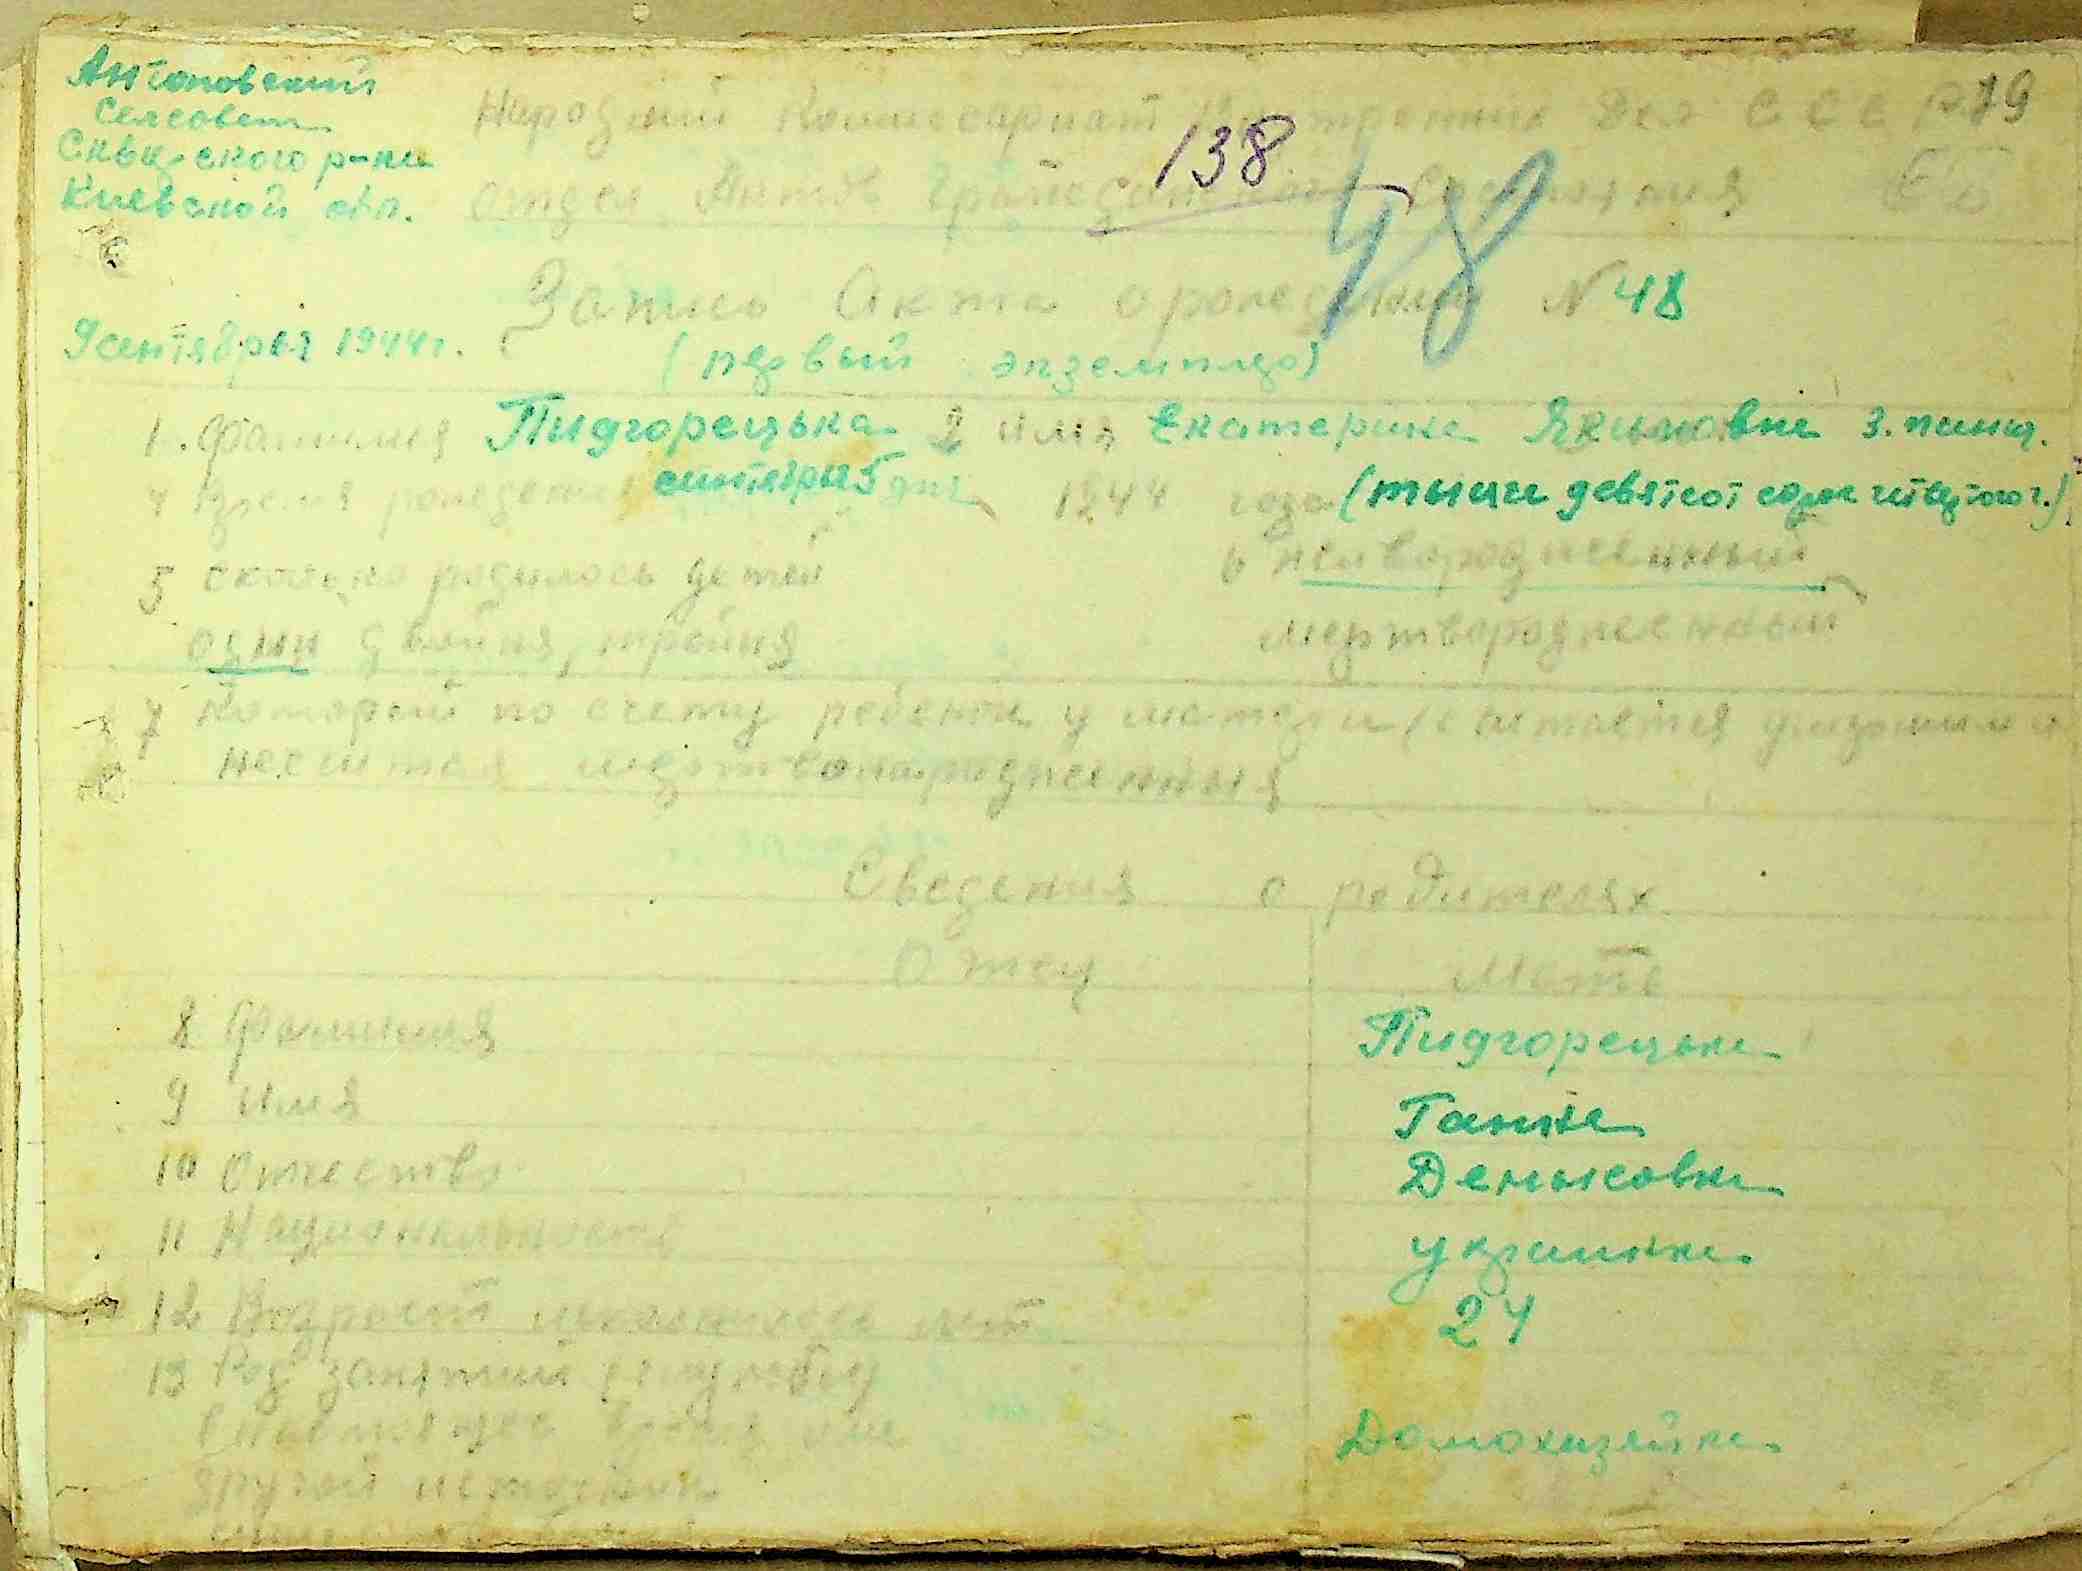 Антоновский
Сельсовет
Сквырского р-на
Киевской обл.
Народний Комиссариат Внутренних Дел СССР 19
138
отдел Актов Гражданского Состояния
48
Запись Акта о рождении N 48
9 сентября 1944 г.
(первый экземпляр)
1. Фамилия Пидгорецька 2 имя Екатерина Якимовна 3. женщ.
4 Время рождения сентября 5 дня 1944 года (тысяч девятсот сорок четвертого г.)
5 сколько родилось детей 6 живорожденный
один двойня, тройня мертворожденный
7 Который по счету ребенок у матери (считается умершими и
не считая мертворожденных
Сведения о родителях
Отец Мать
8 Фамилия Пидгорецька
9 имя Ганна
10 Отчество Денысовна
11 Национальность украинка
12 Возраст исполнилось лет 24
13 Род занятий (службы
в настоящее время или
другой источник Домохазяйка